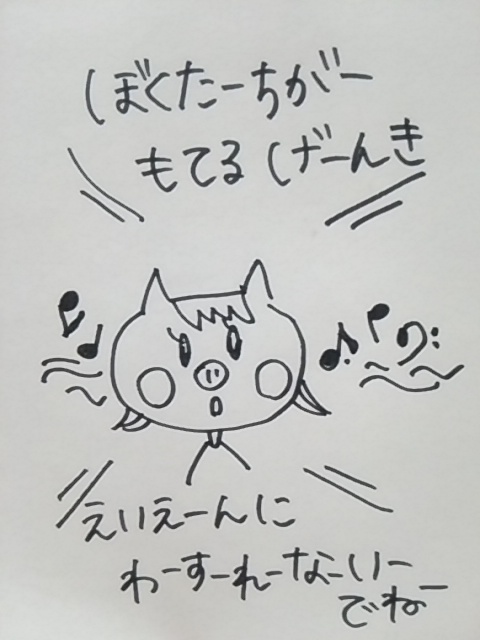 ぼくたーちがー
もてるげーんき
えいえーんに
わーすーれーなーいー
でねー